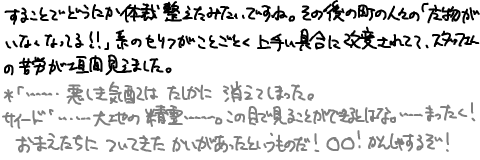 することでどうにか体裁整えたみたいですね。その後の町の人々の「魔物が
いなくなってる!!」系のセリフがことごとく上手い具合に改変されてて、スタッフさん
の苦労が垣間見えました。
*「…… 悪しき気配は たしかに 消えてしまった。
サイード「……大地の精霊……。この目で見ることができるとはな。……まったく!
おまえたちに ついてきた かいがあったというものだ! ○○! かんしゃするぞ!